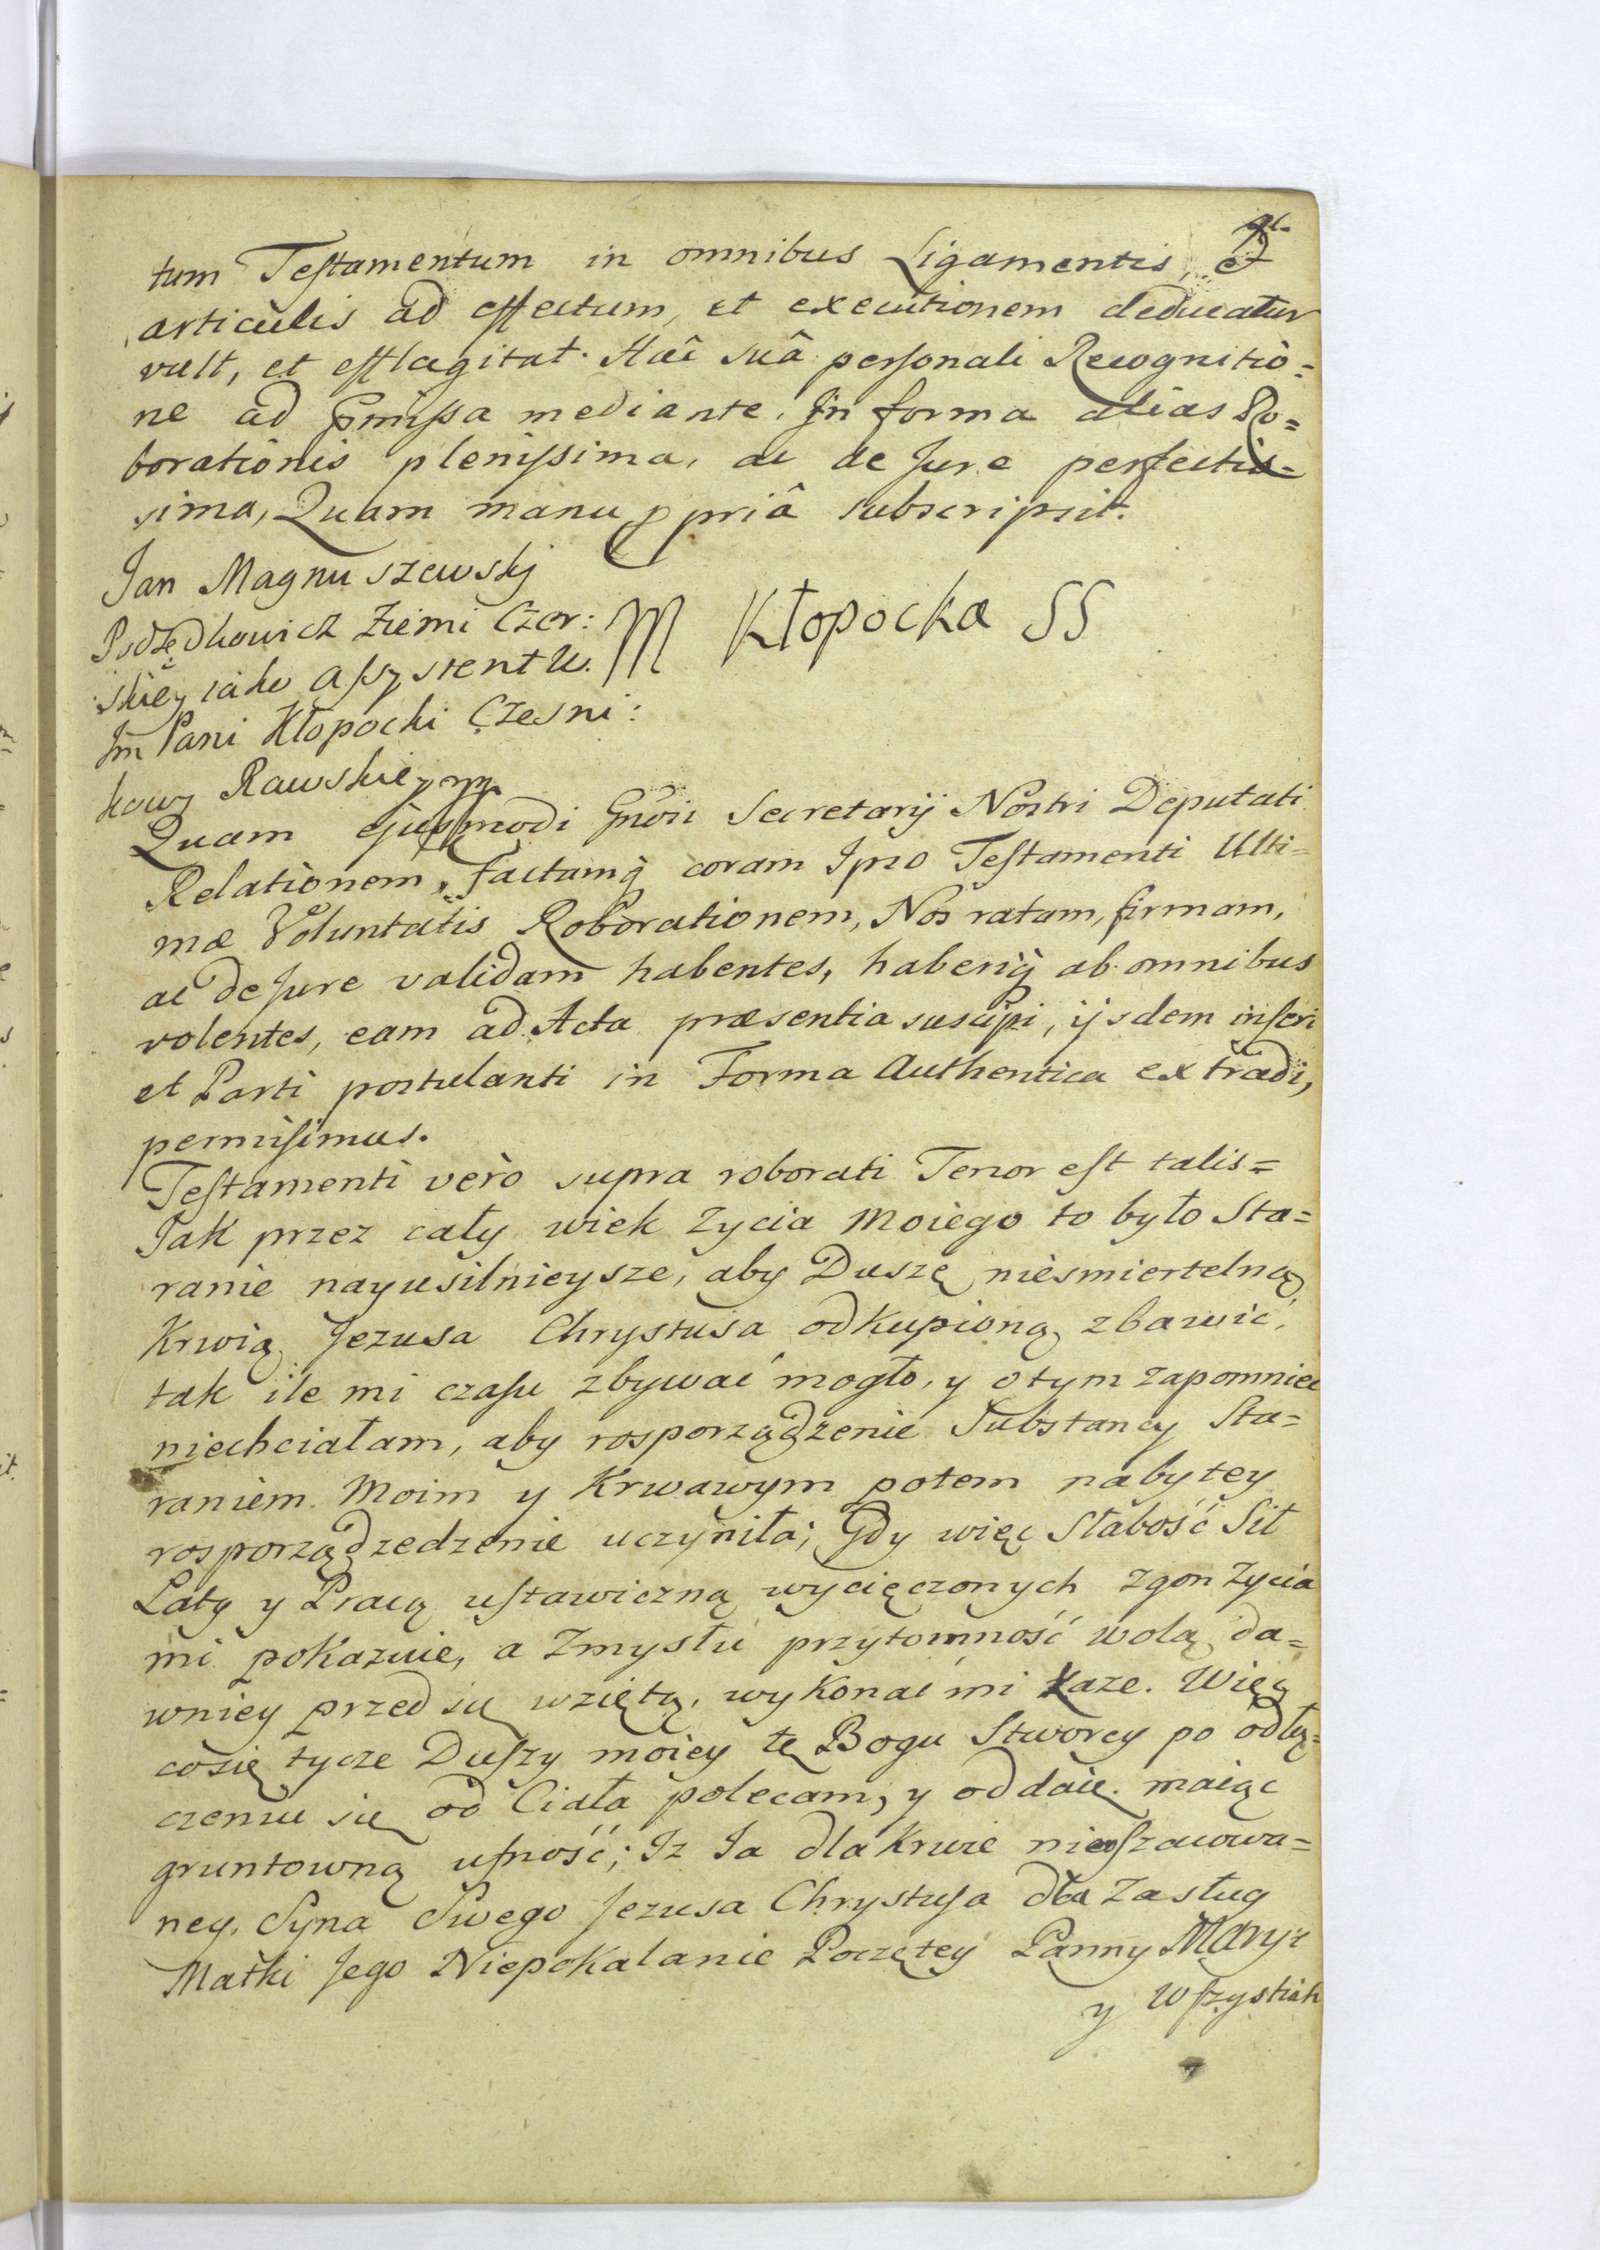 tum Testamentum in omnibus Ligamentis, et
articulis ad effectum, et executionem deducatur
vult, et efflagitat. Hac suâ personali Recognitio=
ne ad Pmissa mediante. In forma alias Ro=
borationis plenissima, ac de Jure perfectis=
sima, Quam manu ppriâ subscripsit.
Jan Magnuszewskj
Podsędkowicz Ziemi Czer:
skiey iako assystent u.
Jm Pani Kłopocki Czesni:
kowy Rawskiey mp
M Kłopocka SS
Quam ejusmodi Gnosi Secretarij Nostri Deputati
Relationem, factamq̃ coram Ipso Testamenti Ulti=
mæ Voluntatis Roborationem, Nos ratam, firmam,
ac de Jure validam habentes, haberiq̃ ab omnibus
volentes, eam ad Acta præsentia suscipi, ijsdem inseri
et Parti postulanti in Forma Authentica extradi,
permisimus.
Testamenti vero supra roborati Tenor est talis=
Jak przez cały wiek Zycia Moiego to było Sta=
ranie nayusilnieysze, aby Duszę niesmiertelną,
Krwią Jezusa Chrystusa odkupioną zbawić,
tak ile mi czasu zbywać mogło, y o tym zapomniec
niechciałam, aby rosporządzenie Substancy Sta=
raniem Moim y Krwawym potem nabytey
rosporządzedzenie uczyniła; Gdy więc Słabość Sił
Laty y Pracą ustawiczną wycięczonych zgon Zycia
mi pokazuie, a Zmysłu przytomność wolą da=
wniey przed się wziętą, wykonać mi każe. Więc
cosię tycze Duszy moiey tę Bogu Stworcy po odłą=
czeniu się od Ciała polecam, y oddaię. maiąc
gruntowną ufność; Iz Ja dla Krwie nieoszacowa=
ney, Syna Swego Jezusa Chrystusa dla Zasług
Matki Jego Niepokalanie Poczętey Panny Maryi
y Wszystkich